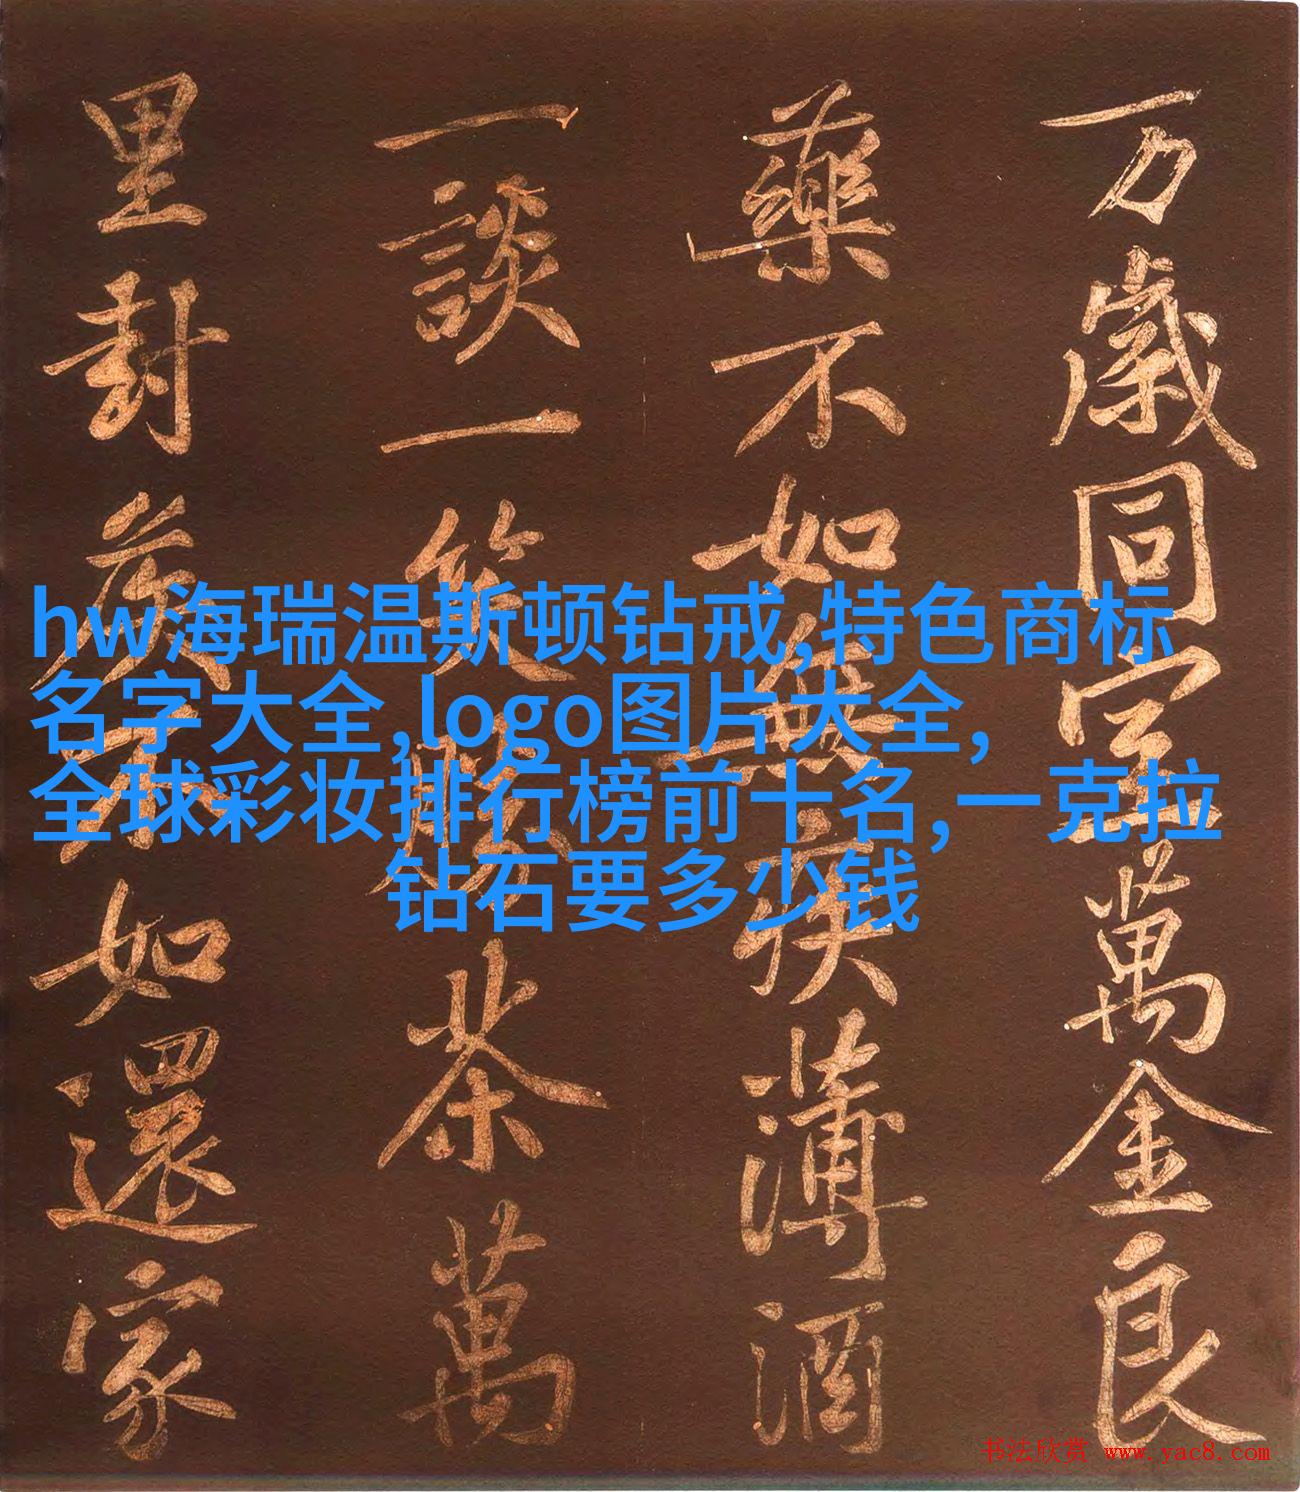 万歲同室萬金良
藥不如無疾薄酒
一談一笑勝茶萬
里封侯不如還家
hw海瑞温斯顿钻戒,特色商标
名字大全,logo图片大全,
全球彩妆排行榜前十名,一克拉
钻石要多少钱
书法欣赏 www.yac8.com